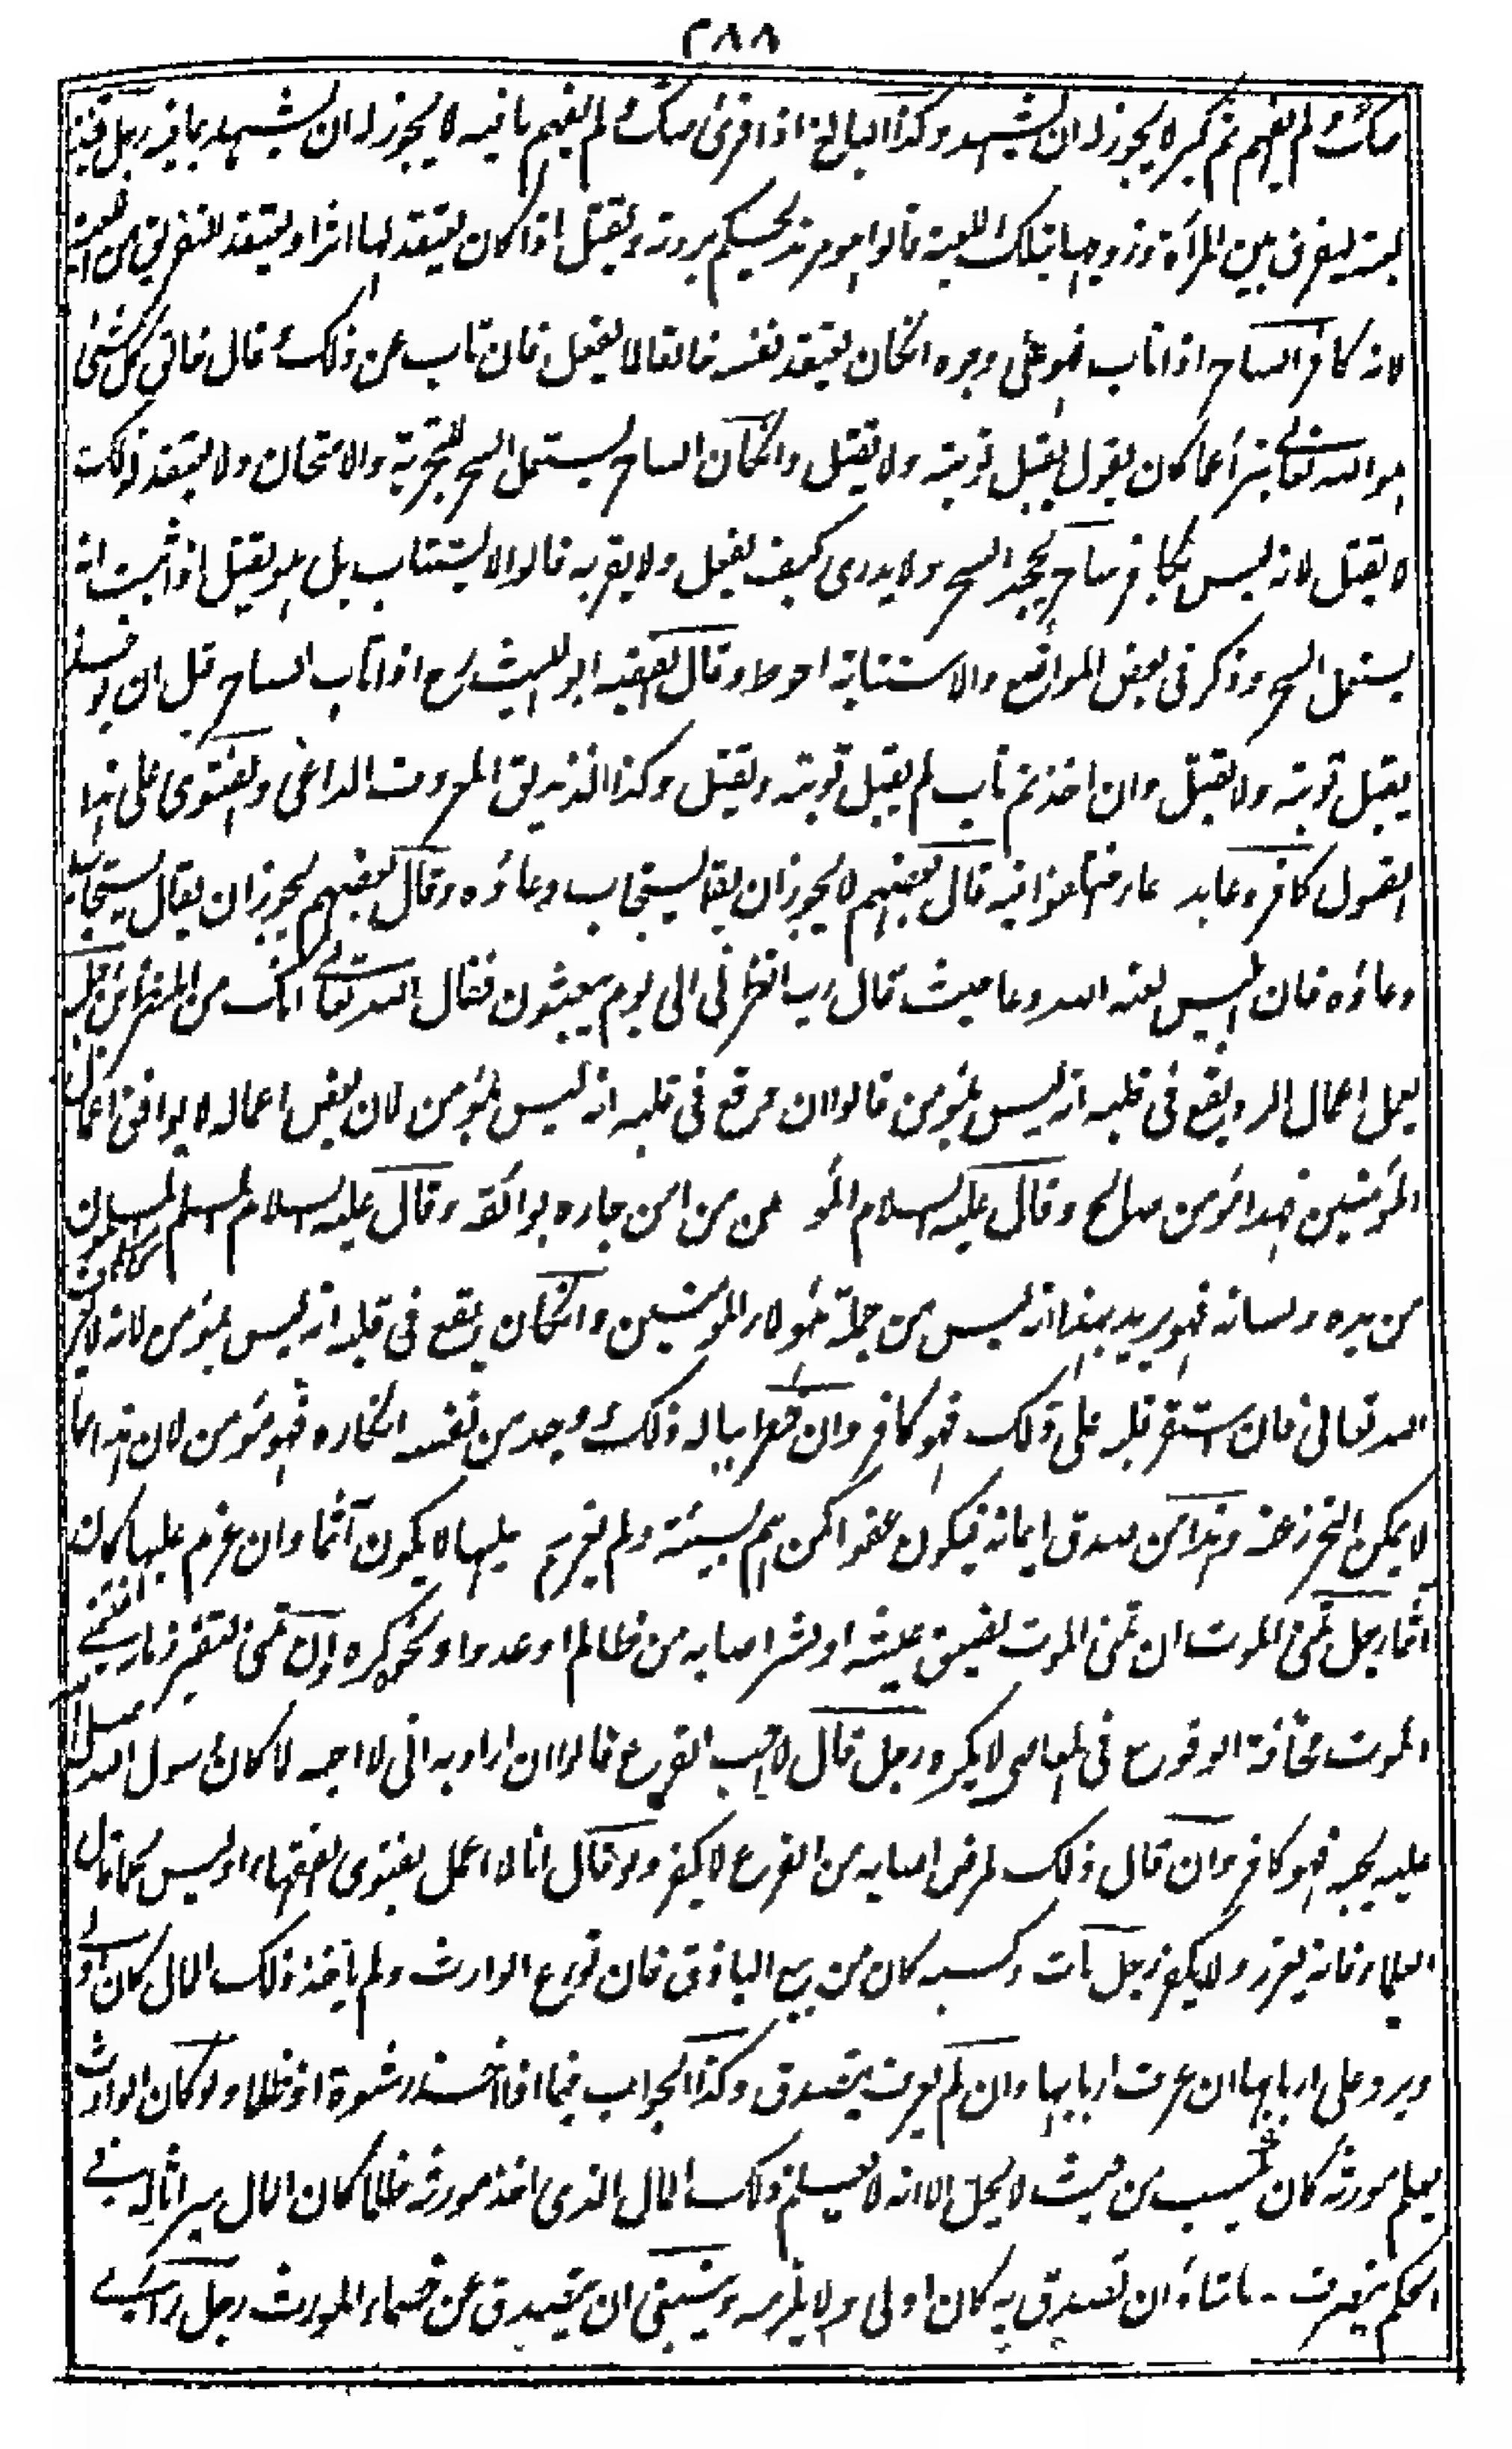 ٢٨٨
صك ولم يفهم ثم كبر لا يجوز له ان يشهد وكذا البالغ اذا قرئ صك ولم يفهم ما فيه لا يجوز له ان يشهد بما فيه رجل
لعبة ليفرق بين المرأة وزوجها بتلك اللعبة قالوا هو مرتد يحكم بردته ويقتل اذا كان يعتقد لها اثرا ويعتقد التفريق من اللعبة
لانه كافر الساحر اذا تاب فهو على وجوه انكان يعتقد نفسه خالقا لما يفعل فان تاب عن ذلك وقال خالق كل شئ
هو الله تعالى وتبرأ عما كان يقول يقبل توبته ولا يقتل وانكان الساحر يستعمل السحر للتجربة والامتحان ولا يعتقد ذلك
لا يقتل لانه ليس بكافر ساحر يجحد السحر ولا يدرى كيف يفعل ولا يقر به قالوا لا يستتاب بل هو يقتل اذا ثبت انه
يستعمل السحر وذكر فى بعض المواضع والاستتابة احوط وقال الفقيه ابو الليث رح اذا تاب الساحر قبل ان يوخذ
يقبل توبته ولا يقتل وان اخذ ثم تاب لم يقبل توبته ويقتل وكذا الزنديق المعروف الداعى والفتوى على هذا
القول كافر دعا بدعاء قال بعضهم لا يجوز ان يقال يستجاب دعاؤه وقال بعضهم يجوز ان يقال يستجاب
دعاؤه فان ابليس لعنه الله دعا حيث قال رب انظرنى الى يوم يبعثون فقال الله تعالى انك من المنظرين رجل
يعمل اعمال البر ويقع فى قلبه انه ليس بمؤمن قالوا ان وقع فى قلبه انه ليس بمؤمن لان بعض اعماله لا يوافق اعمال
المؤمنين فهذا مؤمن صالح وقال عليه السلام المؤمن من امن جاره بوائقه وقال عليه السلام المسلم من سلم المسلمون
من يده ولسانه فهو يريد بهذا انه ليس من جملة هؤلاء المؤمنين وانكان يقع فى قلبه انه ليس بمؤمن لانه لا يعرف
الله تعالى فان استقر قلبه على ذلك فهو كافر وان خطر بباله ذلك ووجد من نفسه انكاره فهو مؤمن لان هذا مما
لا يمكن التحرز عنه وهذا من صدق ايمانه فيكون عفوا كمن هم بسيئة ولم يعزم عليها لا يكون آثما وان عزم عليها كان
آثما رجل تمنى الموت ان تمنى الموت لضيق عيشه او لشر اصابه من ظالم او عدو او نحوه كره وان تمنى لتغير زمانه
الموت مخافة الوقوع فى المعاصى لا يكره رجل قال لا احب القرع قالوا ان اراد به انى لا احبه لما كان رسول الله صلى الله
عليه يحبه فهو كافر وان قال ذلك لمرض اصابه من القرع لا يكفر ولو قال انا لا اعمل بفتوى الفقهاء او ليس كما قال
العلماء فانه يعزر ولا يكفر رجل مات وكسبه كان من بيع الباذق فان تورع الوارث ولم يأخذ ذلك المال كان اولى
ويرد على اربابها ان عرف اربابها وان لم يعرف يتصدق وكذا الجواب فيما اذا اخذ رشوة او ظلما ولو كان الوارث
يعلم مورثه كان يكسب من حيث لا يحل الا انه لا يعلم ذلك المال الذى اخذ مورثه ظلما كان المال ميراثا له فى
الحكم يتصرف ما شاء ان تصدق به كان اولى ولا يلزمه وينبغى ان يتصدق عن خصماء المورث رجل رأى